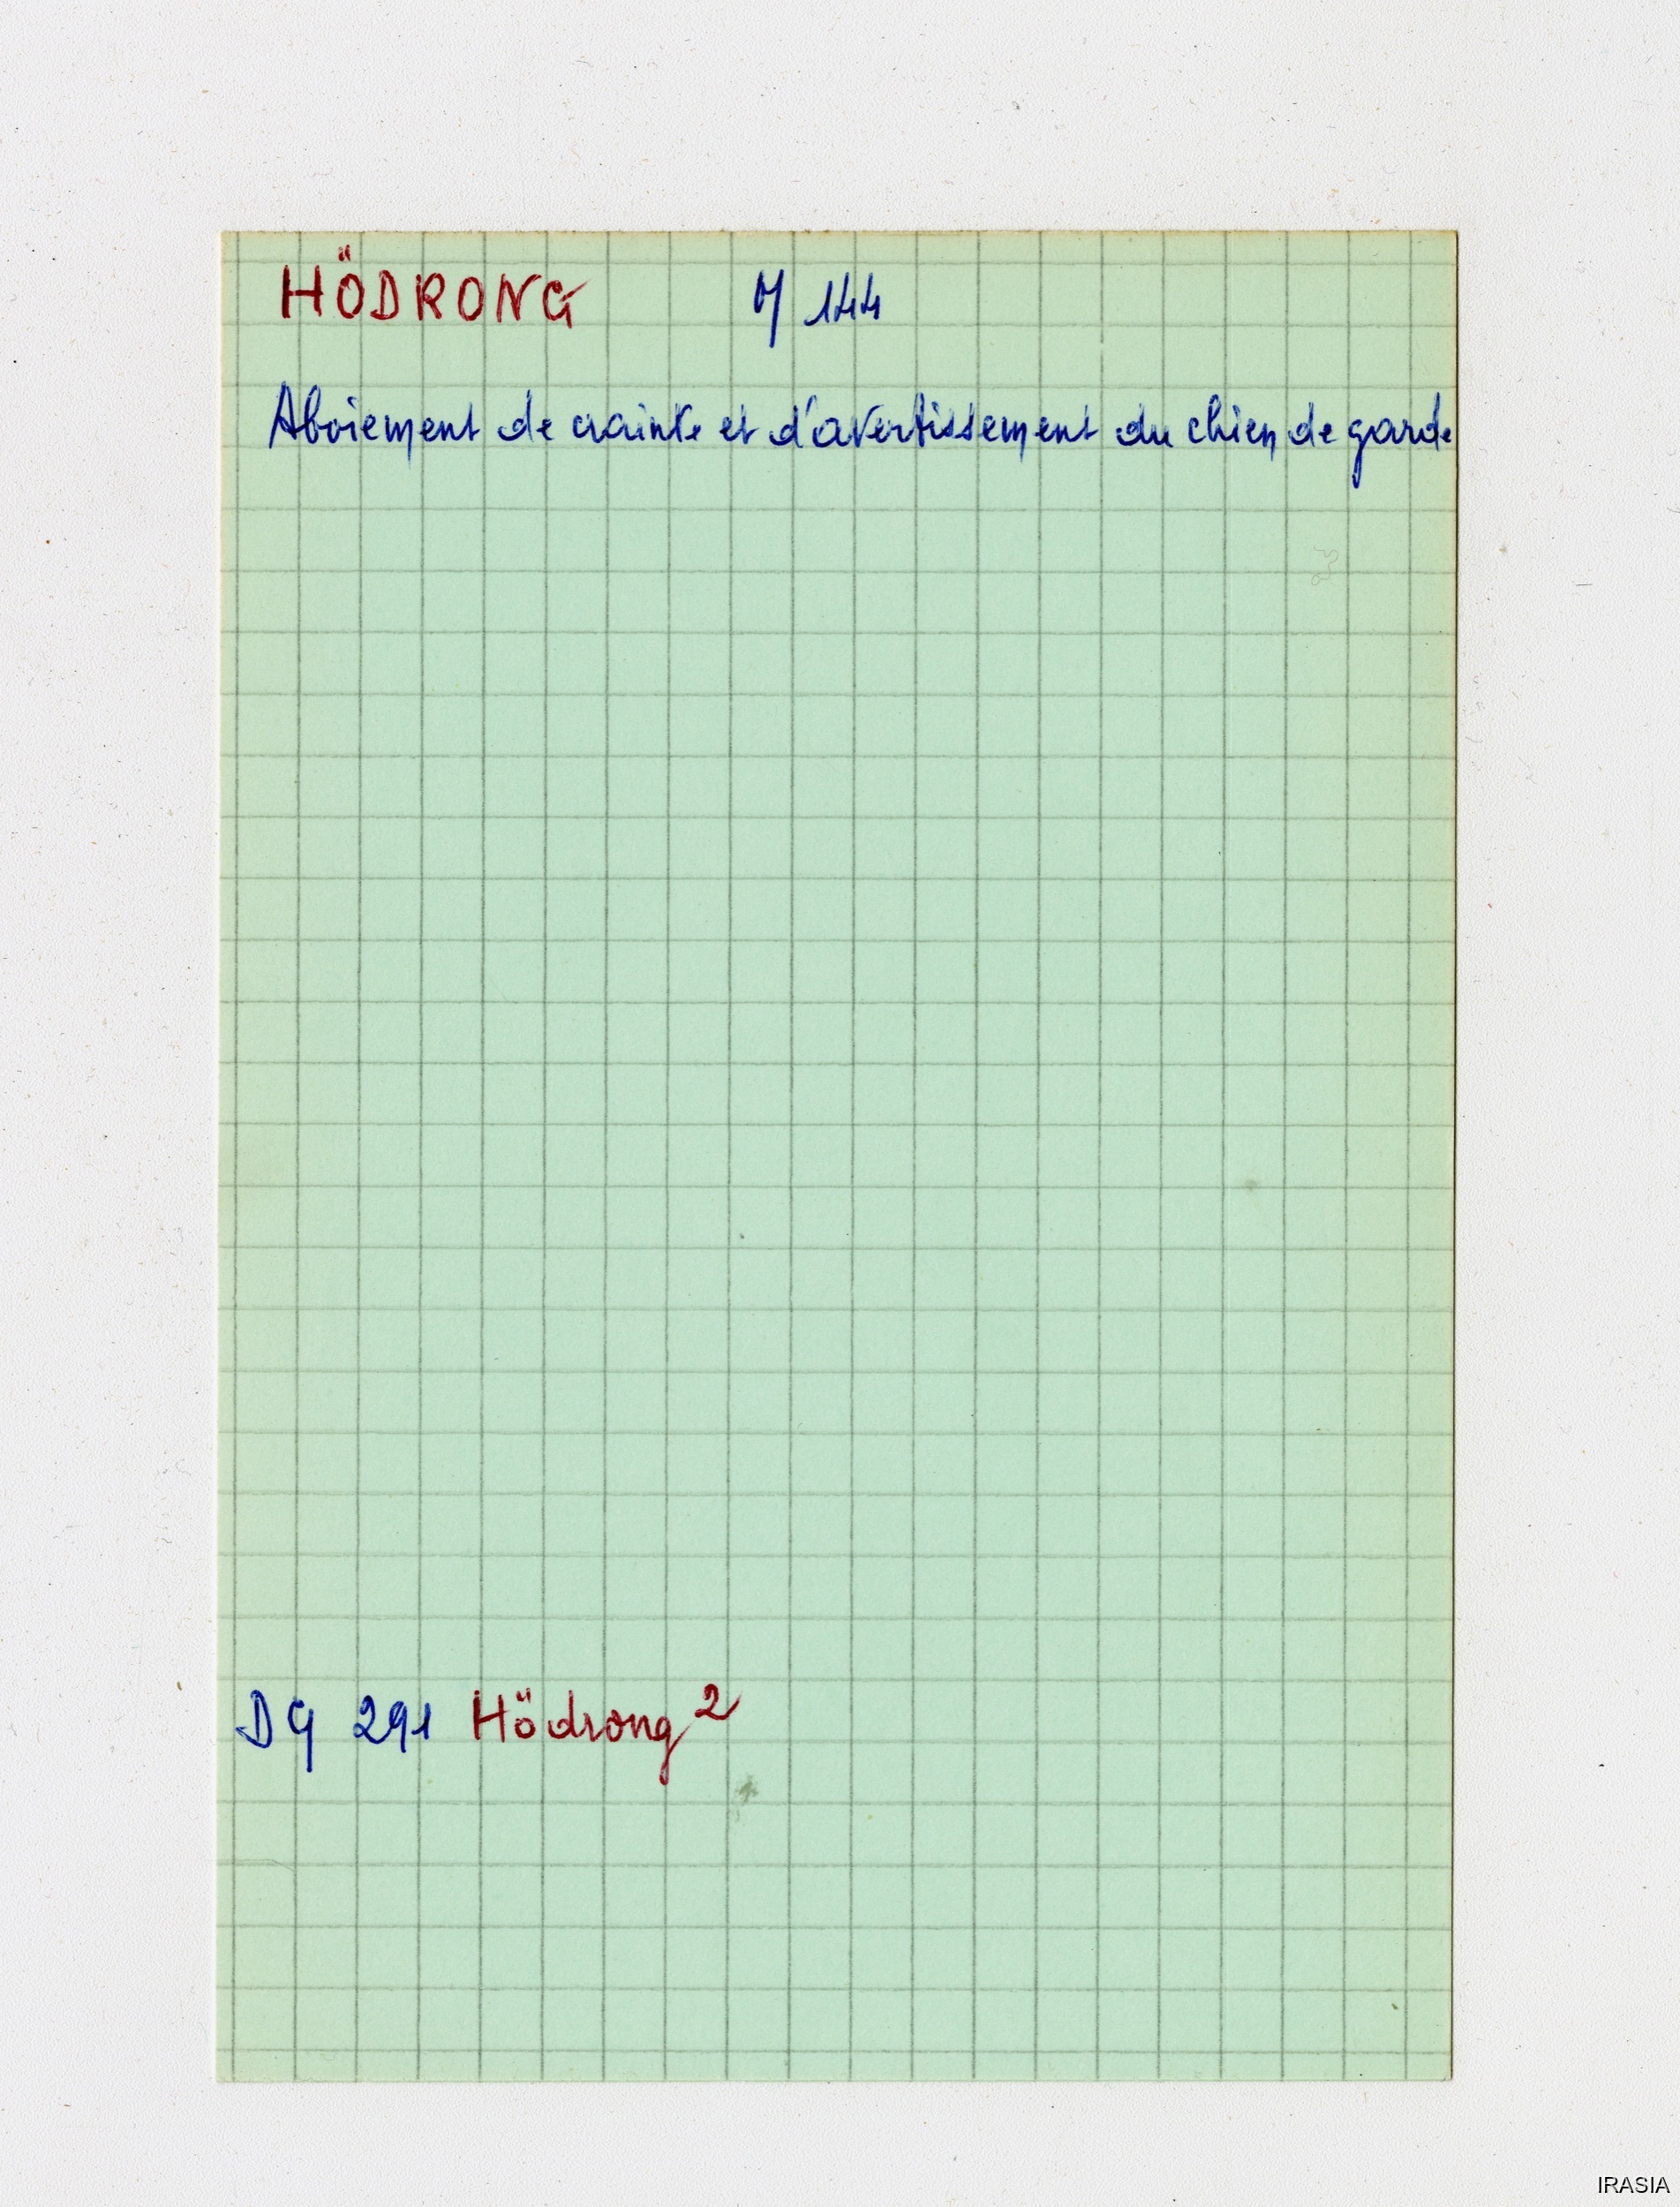 HÖDRONG M 144
Aboiement de crainte et d'avertissement du chien de garde
DG 291 Hödrong 2
IRASIA